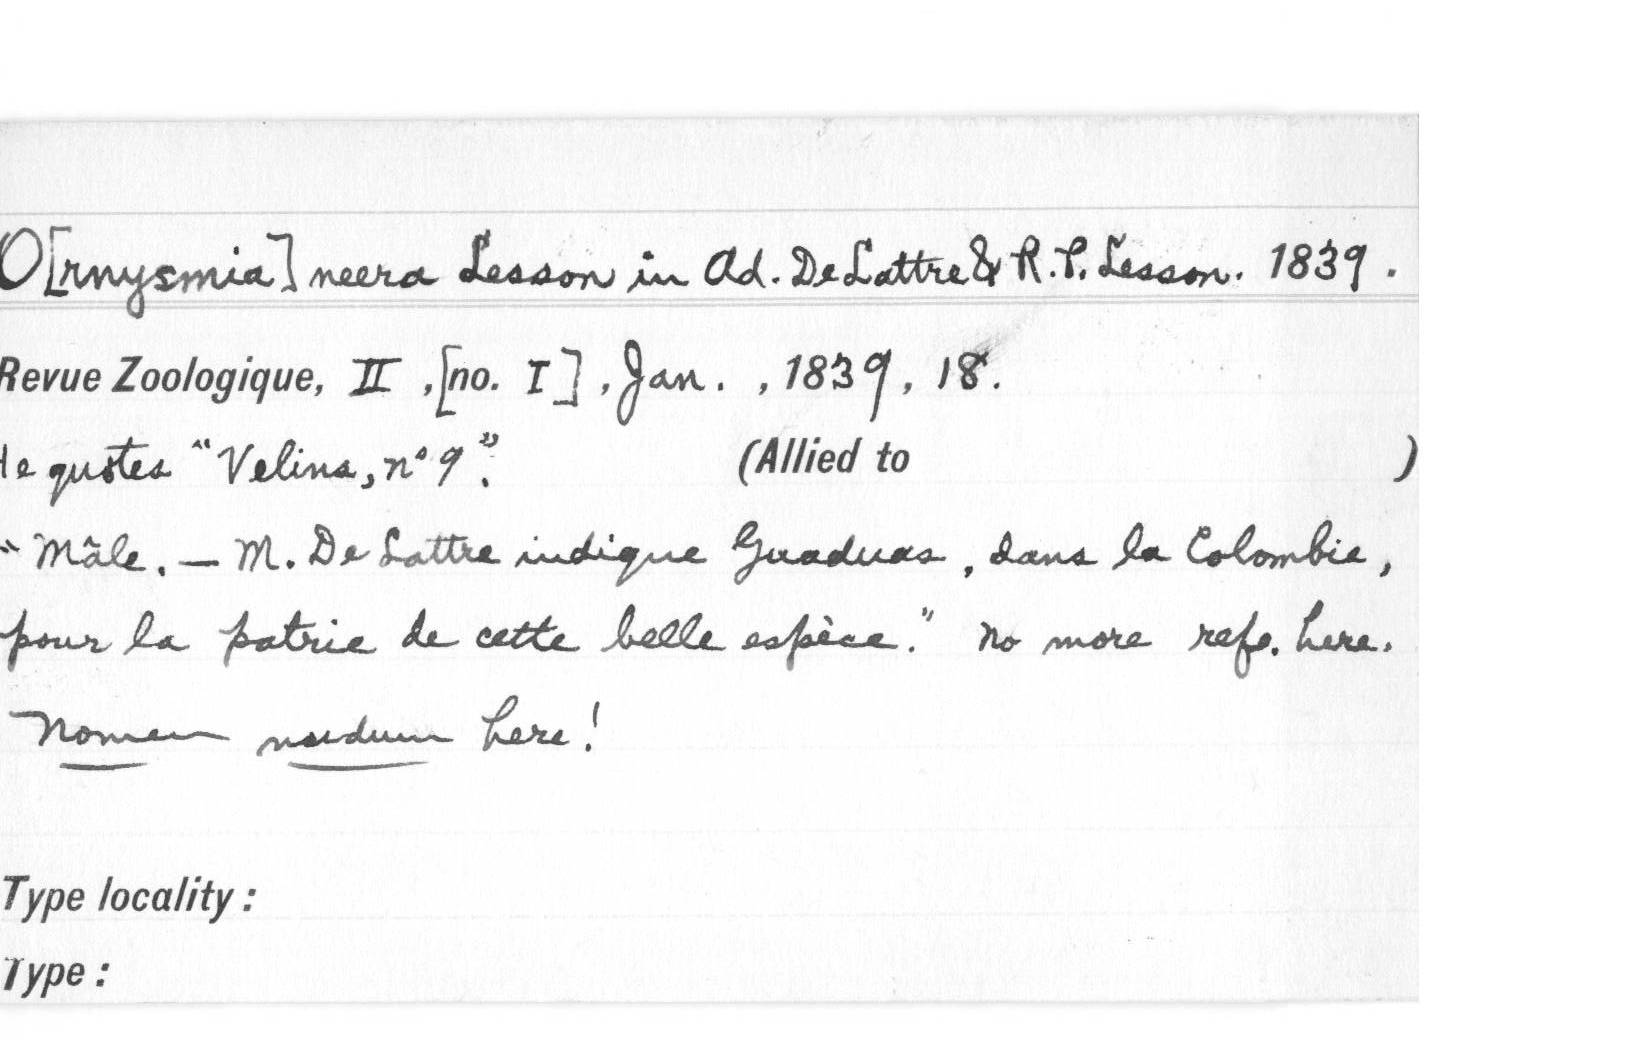 O[rnysmia] neera Lesson in Ad. DeLattre & R.P. Lesson. 1839.
Revue Zoologique, II, [no. I], Jan., 1839, 18.
He quotes "Velins, nº 9". (Allied to )
"Mâle. — M. De Lattre indique Guaduas, dans la Colombie,
pour la patrie de cette belle espèce." No more refs. here.
Nomen nudum here!
Type locality:
Type: